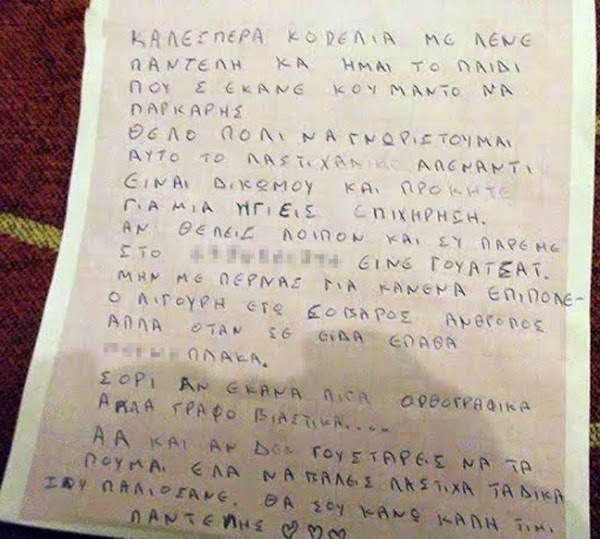 ΚΑΛΕΣΠΕΡΑ ΚΟΠΕΛΙΑ ΜΕ ΛΕΝΕ
ΠΑΝΤΕΛΗ ΚΑ ΗΜΑΙ ΤΟ ΠΑΙΔΙ
ΠΟΥ Σ ΕΚΑΝΕ ΚΟΥΜΑΝΤΟ ΝΑ
ΠΑΡΚΑΡΗΣ
ΘΕΛΟ ΠΟΛΙ ΝΑ ΓΝΩΡΙΣΤΟΥΜΑΙ
ΑΥΤΟ ΤΟ ΛΑΣΤΙΧΑΔΙΚΟ ΑΠΕΝΑΝΤΙ
ΕΙΝΑΙ ΔΙΚΩΜΟΥ ΚΑΙ ΠΡΟΚΗΤΕ
ΓΙΑ ΜΙΑ ΥΓΙΕΙΣ ΕΠΙΧΗΡΗΣΗ.
ΑΝ ΘΕΛΕΙΣ ΛΟΙΠΟΝ ΚΑΙ ΣΥ ΠΑΡΕ ΜΕ
ΣΤΟ ΕΙΝΕ ΓΟΥΑΤΣΑΤ.
ΜΗΝ ΜΕ ΠΕΡΝΑΣ ΓΙΑ ΚΑΝΕΝΑ ΕΠΙΠΟΛΕ-
Ο ΛΙΓΟΥΡΗ ΕΓΩ ΣΟΒΑΡΟΣ ΑΝΘΡΟΠΟΣ
ΑΠΛΑ ΟΤΑΝ ΣΕ ΕΙΔΑ ΕΠΑΘΑ
ΠΛΑΚΑ.
ΣΟΡΙ ΑΝ ΕΚΑΝΑ ΛΙΓΑ ΟΡΘΟΓΡΑΦΙΚΑ
ΑΛΛΑ ΓΡΑΦΟ ΒΙΑΣΤΙΚΑ.....
ΑΑ ΚΑΙ ΑΝ ΔΕΝ ΓΟΥΣΤΑΡΕΙΣ ΝΑ ΤΑ
ΠΟΥΜΑΙ ΕΛΑ ΝΑ ΒΑΛΕΙΣ ΛΑΣΤΙΧΑ ΤΑ ΔΙΚΑ
ΣΟΥ ΠΑΛΙΟΣΑΝΕ. ΘΑ ΣΟΥ ΚΑΝΩ ΚΑΛΗ ΤΙΜΙ.
ΠΑΝΤΕΛΗΣ ♡♡♡